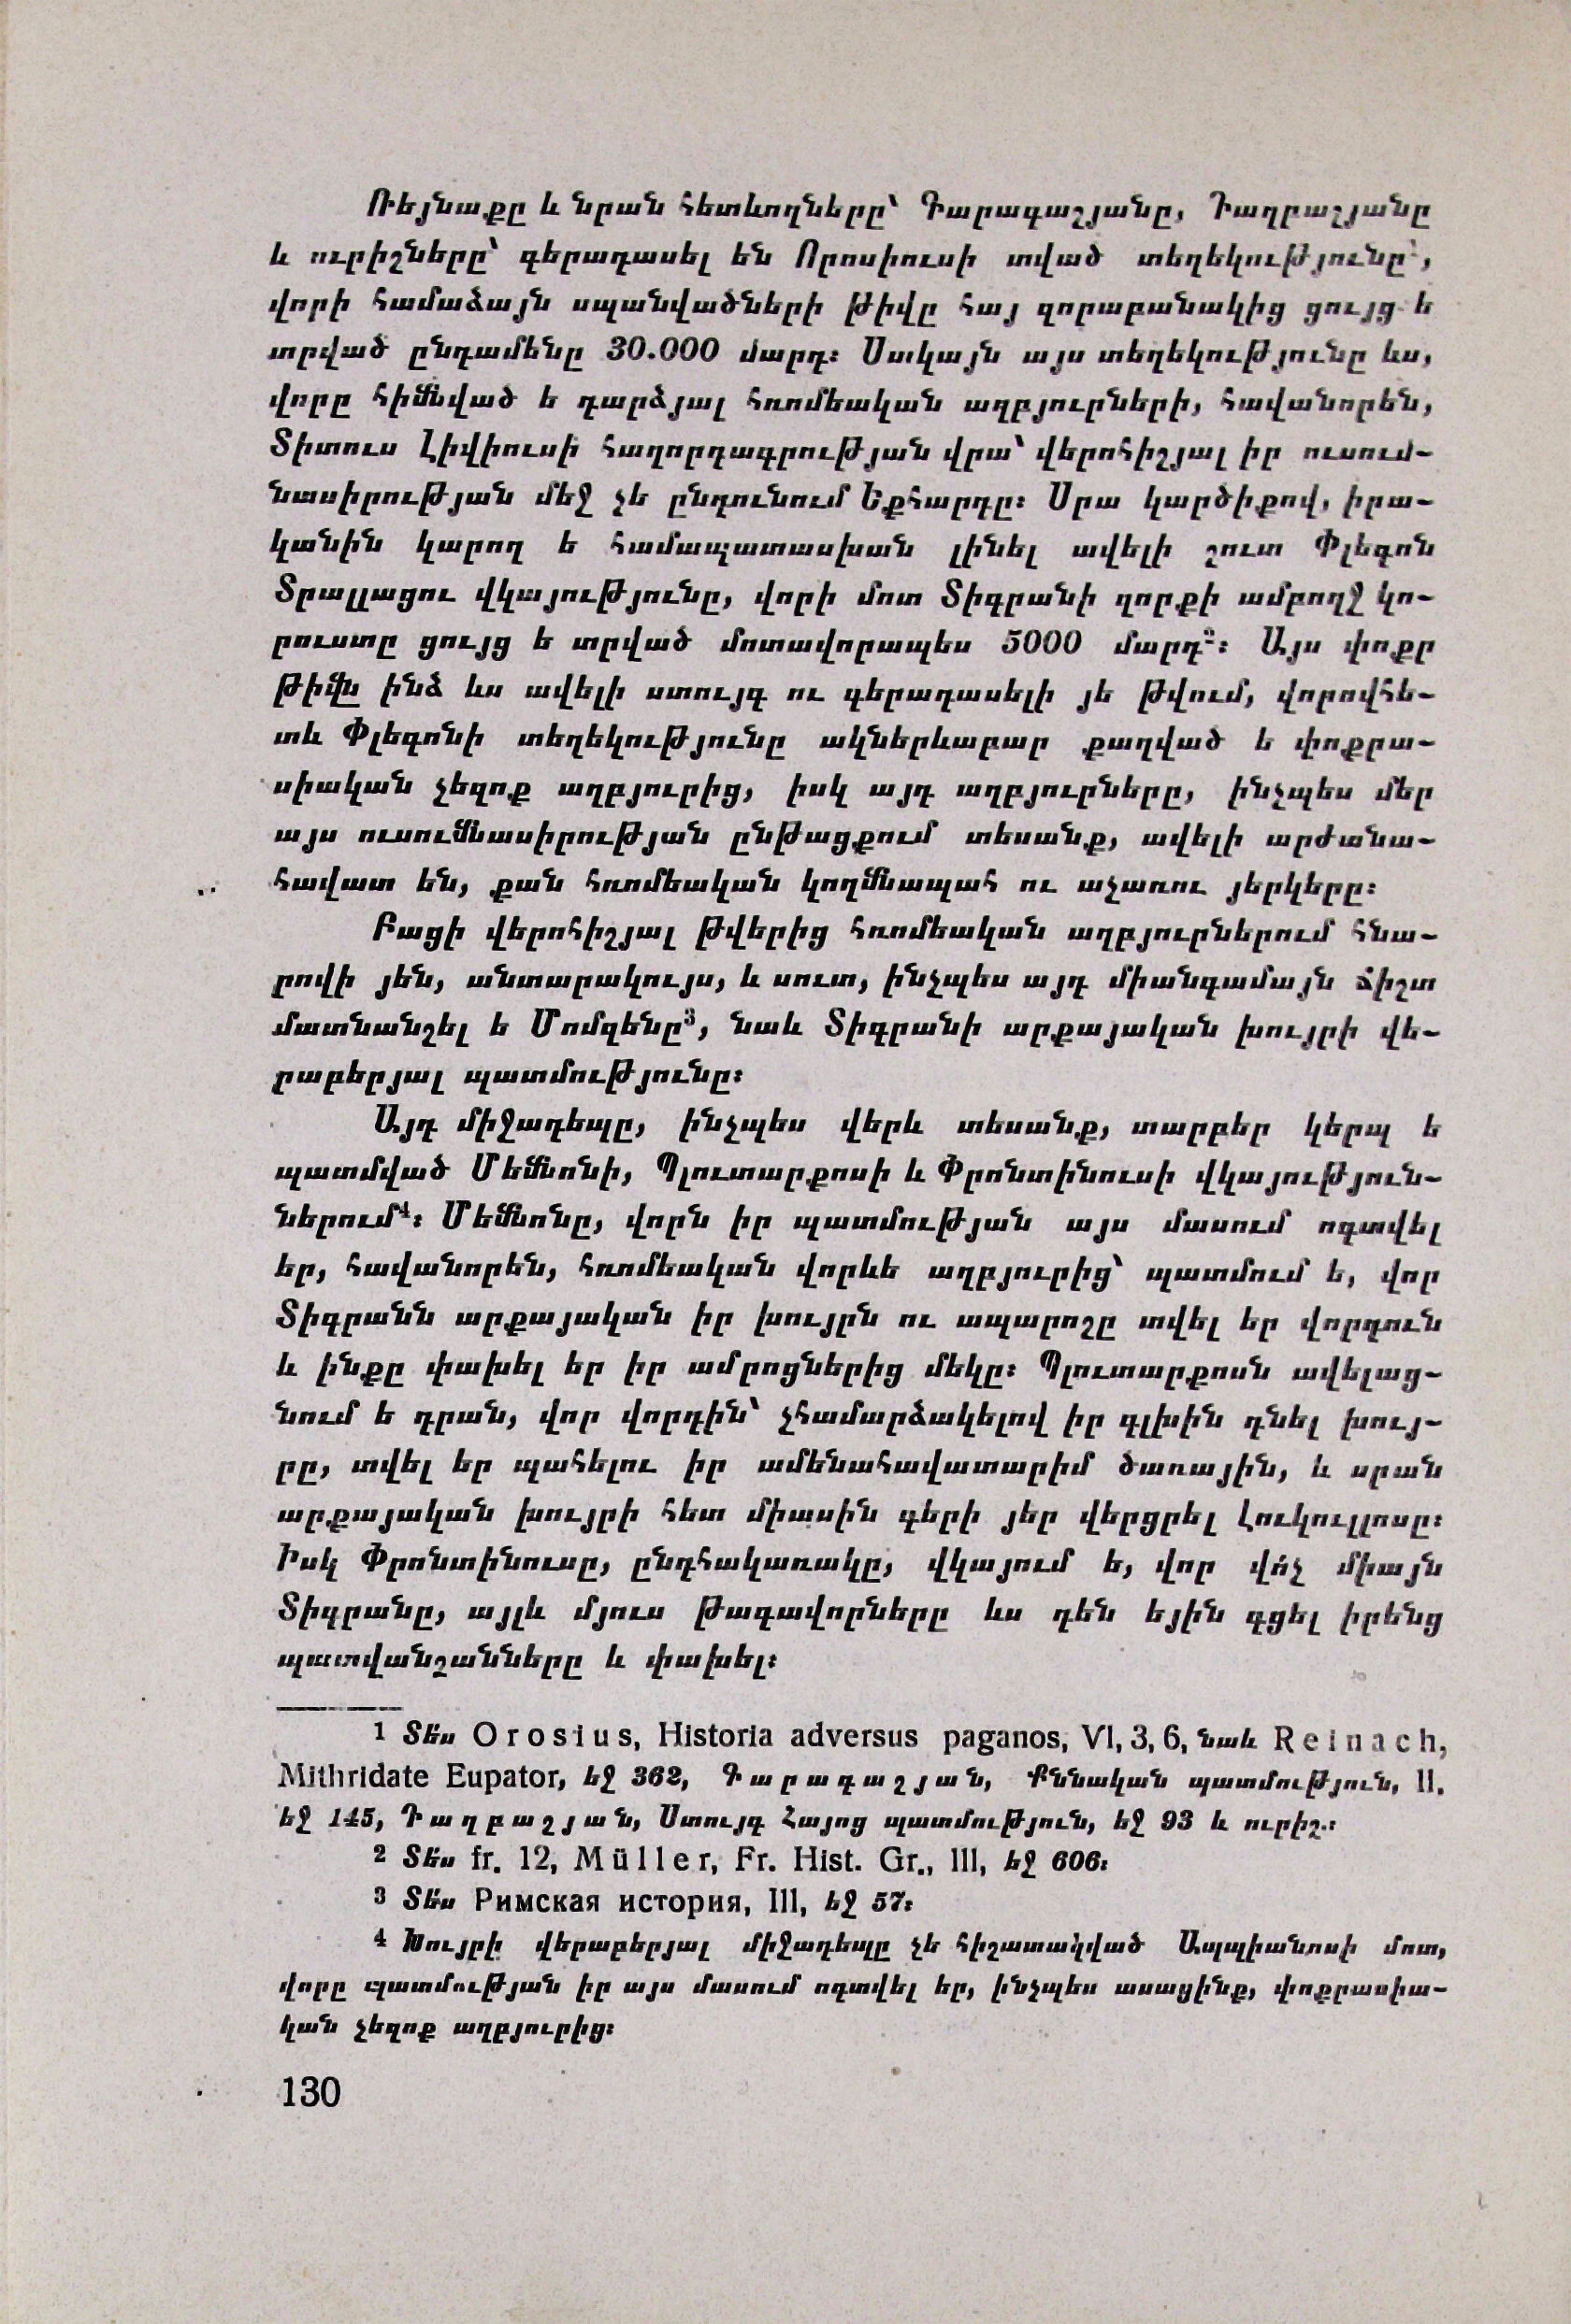 Ռեյնաքը և նրան հետևողները՝ Գարագաշյանը, Դաղբաշյանը
և ուրիշները՝ գերադասել են Որոսիուսի տված տեղեկությունը¹,
վորի համաձայն սպանվածների թիվը հայ զորաբանակից ցույց ե
տրված ընդամենը 30.000 մարդ։ Սակայն այս տեղեկությունը ևս,
վորը հիմնված ե դարձյալ հռոմեական աղբյուրների, հավանորեն,
Տիտուս Լիվիուսի հաղորդագրության վրա՝ վերոհիշյալ իր ուսում-
նասիրության մեջ չե ընդունում Եքհարդը։ Սրա կարծիքով, իրա-
կանին կարող ե համապատասխան լինել ավելի շուտ Փլեգոն
Տրալլացու վկայությունը, վորի մոտ Տիգրանի զորքի ամբողջ կո-
րուստը ցույց ե տրված մոտավորապես 5000 մարդ²։ Այս փոքր
թիվն ինձ ևս ավելի ստույգ ու գերադասելի յե թվում, վորովհե-
տև Փլեգոնի տեղեկությունը ակներևաբար քաղված ե փոքրա-
սիական չեզոք աղբյուրից, իսկ այդ աղբյուրները, ինչպես մեր
այս ուսումնասիրության ընթացքում տեսանք, ավելի արժանա-
հավատ են, քան հռոմեական կողմնապահ ու աչառու յերկերը։
Բացի վերոհիշյալ թվերից հռոմեական աղբյուրներում հնա-
րովի յեն, անտարակույս, և սուտ, ինչպես այդ միանգամայն ճիշտ
մատնանշել ե Մոմզենը³, նաև Տիգրանի արքայական խույրի վե-
րաբերյալ պատմությունը։
Այդ միջադեպը, ինչպես վերև տեսանք, տարբեր կերպ ե
պատմված Մեմնոնի, Պլուտարքոսի և Փրոնտինուսի վկայություն-
ներում⁴։ Մեմնոնը, վորն իր պատմության այս մասում ոգտվել
եր, հավանորեն, հռոմեական վորևե աղբյուրից՝ պատմում ե, վոր
Տիգրանն արքայական իր խույրն ու ապարոշը տվել եր վորդուն
և ինքը փախել եր իր ամրոցներից մեկը։ Պլուտարքոսն ավելաց-
նում ե դրան, վոր վորդին՝ չհամարձակելով իր գլխին դնել խույ-
րը, տվել եր պահելու իր ամենահավատարիմ ծառային, և սրան
արքայական խույրի հետ միասին գերի յեր վերցրել Լուկուլլոսը։
Իսկ Փրոնտինուսը, ընդհակառակը, վկայում ե, վոր վո՛չ միայն
Տիգրանը, այլև մյուս թագավորները ևս դեն եյին գցել իրենց
պատվանշանները և փախել։
1 Տե՛ս Orosius, Historia adversus paganos, VI, 3, 6, նաև Reinach,
Mithridate Eupator, եջ 362, Գարագաշյան, Քննական պատմություն, II,
եջ 145, Դաղբաշյան, Ստույգ Հայոց պատմություն, եջ 93 և ուրիշ.։
2 Տե՛ս fr. 12, Müller, Fr. Hist. Gr., III, եջ 606։
3 Տե՛ս Римская история, III, եջ 57։
4 Խույրի վերաբերյալ միջադեպը չե հիշատակված Ապպիանոսի մոտ,
վորը պատմության իր այս մասում ոգտվել եր, ինչպես ասացինք, փոքրասիա-
կան չեզոք աղբյուրից։
130